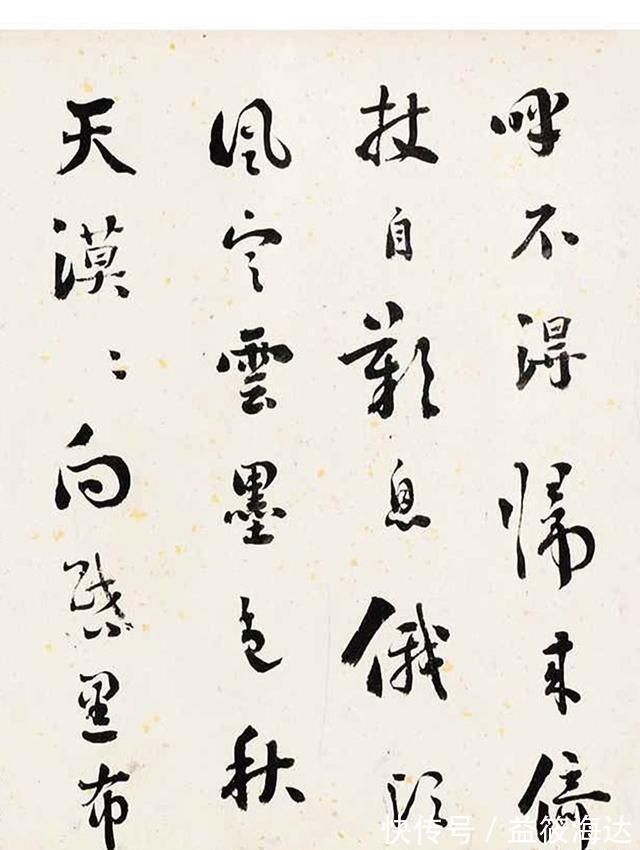 呼不得歸來倚
杖自歎息俄頃
風定雲墨色秋
天漠〻向昏黑布
快传号 / 益筱海达